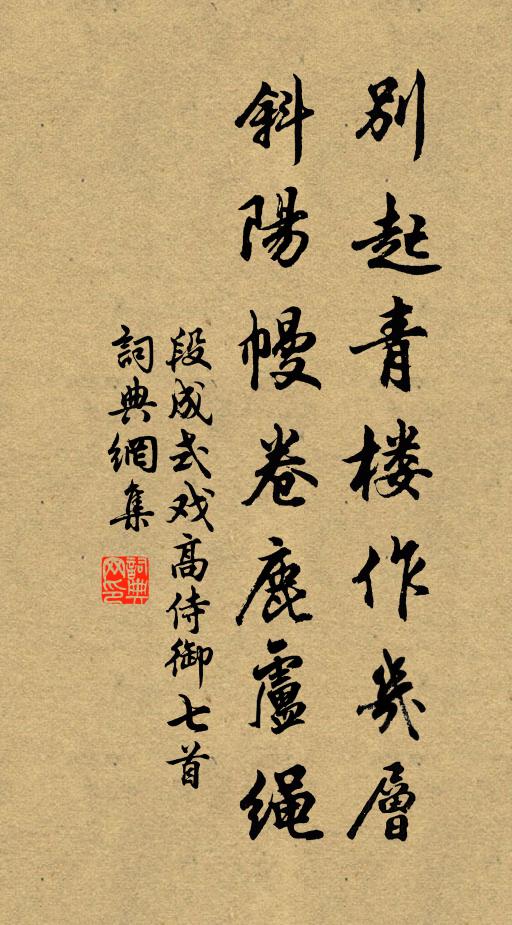 别起青楼作幾層
斜陽幔卷鹿盧绳
段成式戏高侍御七首
詞典網集
詞典网印